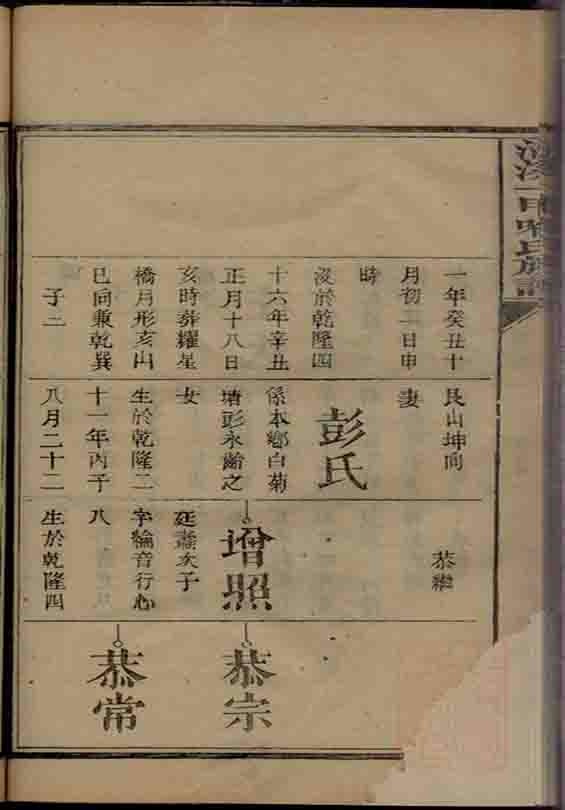 一年癸丑十
月初二日申
時
沒於乾隆四
十六年辛丑
正月十八日
亥時葬耀星
橋月形亥山
巳向兼乾巽
子二
艮山坤向
妻
彭氏
係本鄉白菊
塘彭永齡之
女
生於乾隆二
十一年丙子
八月二十二
恭繼
增照
廷燾次子
字綸音行心
八
生於乾隆四
恭宗
恭常